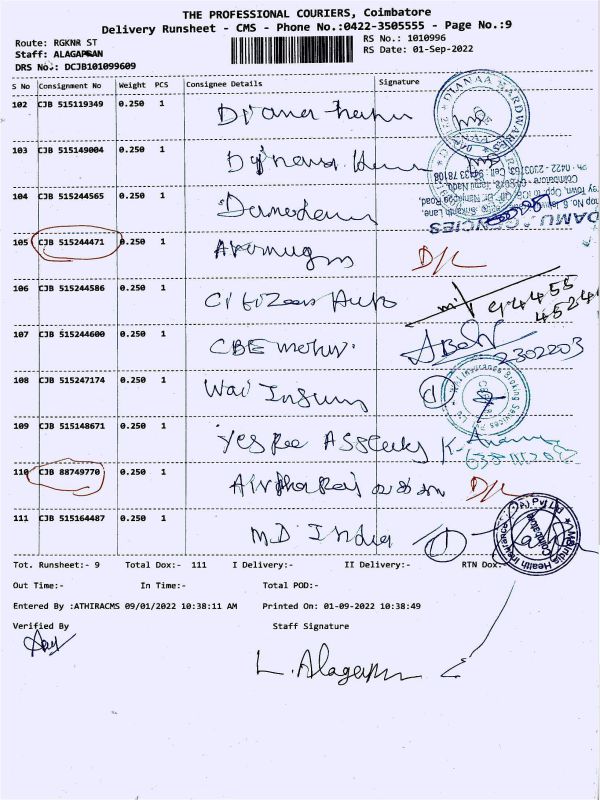 THE PROFESSIONAL COURIERS, Coimbatore
Delivery Runsheet - CMS - Phone No.:0422-3505555 - Page No.:9
Route: RGKNR ST
RS No.: 1010996
Staff: ALAGAPPAN
RS Date: 01-Sep-2022
DRS No.: DCJB101099609
S No Consignment No Weight PCS Consignee Details Signature
102 CJB 515119349 0.250 1
DIANAA HARDWARES
103 CJB 515149004 0.250 1
104 CJB 515244565 0.250 1
105 CJB 515244471 0.250 1 Arumugam D/L
106 CJB 515244586 0.250 1 Citizen Auto
94455
45244
107 CJB 515244600 0.250 1 CBE motor.
2302203
108 CJB 515247174 0.250 1 Wai Insurns 1
109 CJB 515148671 0.250 1
110 CJB 88749770 0.250 1 D/L
111 CJB 515164487 0.250 1 MD India 1
MDIndia Health Insurance Pvt Ltd
Coimbatore
Tot. Runsheet:- 9 Total Dox:- 111 I Delivery:- II Delivery:- RTN Dox:-
Out Time:- In Time:- Total POD:-
Entered By :ATHIRACMS 09/01/2022 10:38:11 AM Printed On: 01-09-2022 10:38:49
Verified By Staff Signature
L. Alagappan